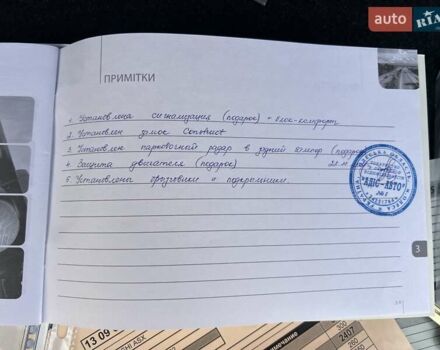 auto RIA
ПРИМІТКИ
1. Установлена сигнализация (подарок) + блок-комфорт
2. Установлен замок Construct
3. Установлен парковочный радар в задний бампер (подарок)
4. Защита двигателя (подарок)
5. Установлены брызговики и подкрылники.
"АДІС-АВТО"
№1
3
13 09
2407
260